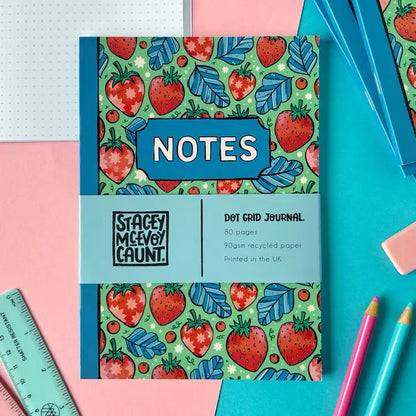 NOTES
STACEY
McEVOY
CAUNT.
DOT GRID JOURNAL.
80 pages
90gsm recycled paper
Printed in the UK
SHATTER RESISTANT